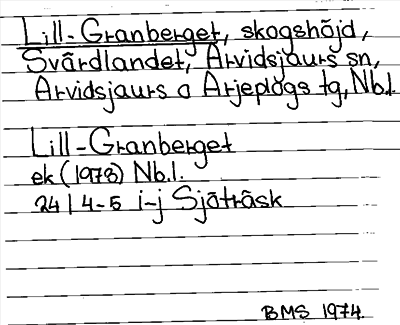 Lill-Granberget, skogshöjd,
Svärdlandet, Arvidsjaurs sn,
Arvidsjaurs o Arjeplogs tg, Nb.l.
Lill-Granberget
ek (1978) Nb.l.
24 I 4-5 i-j Sjöträsk
BMS 1974.